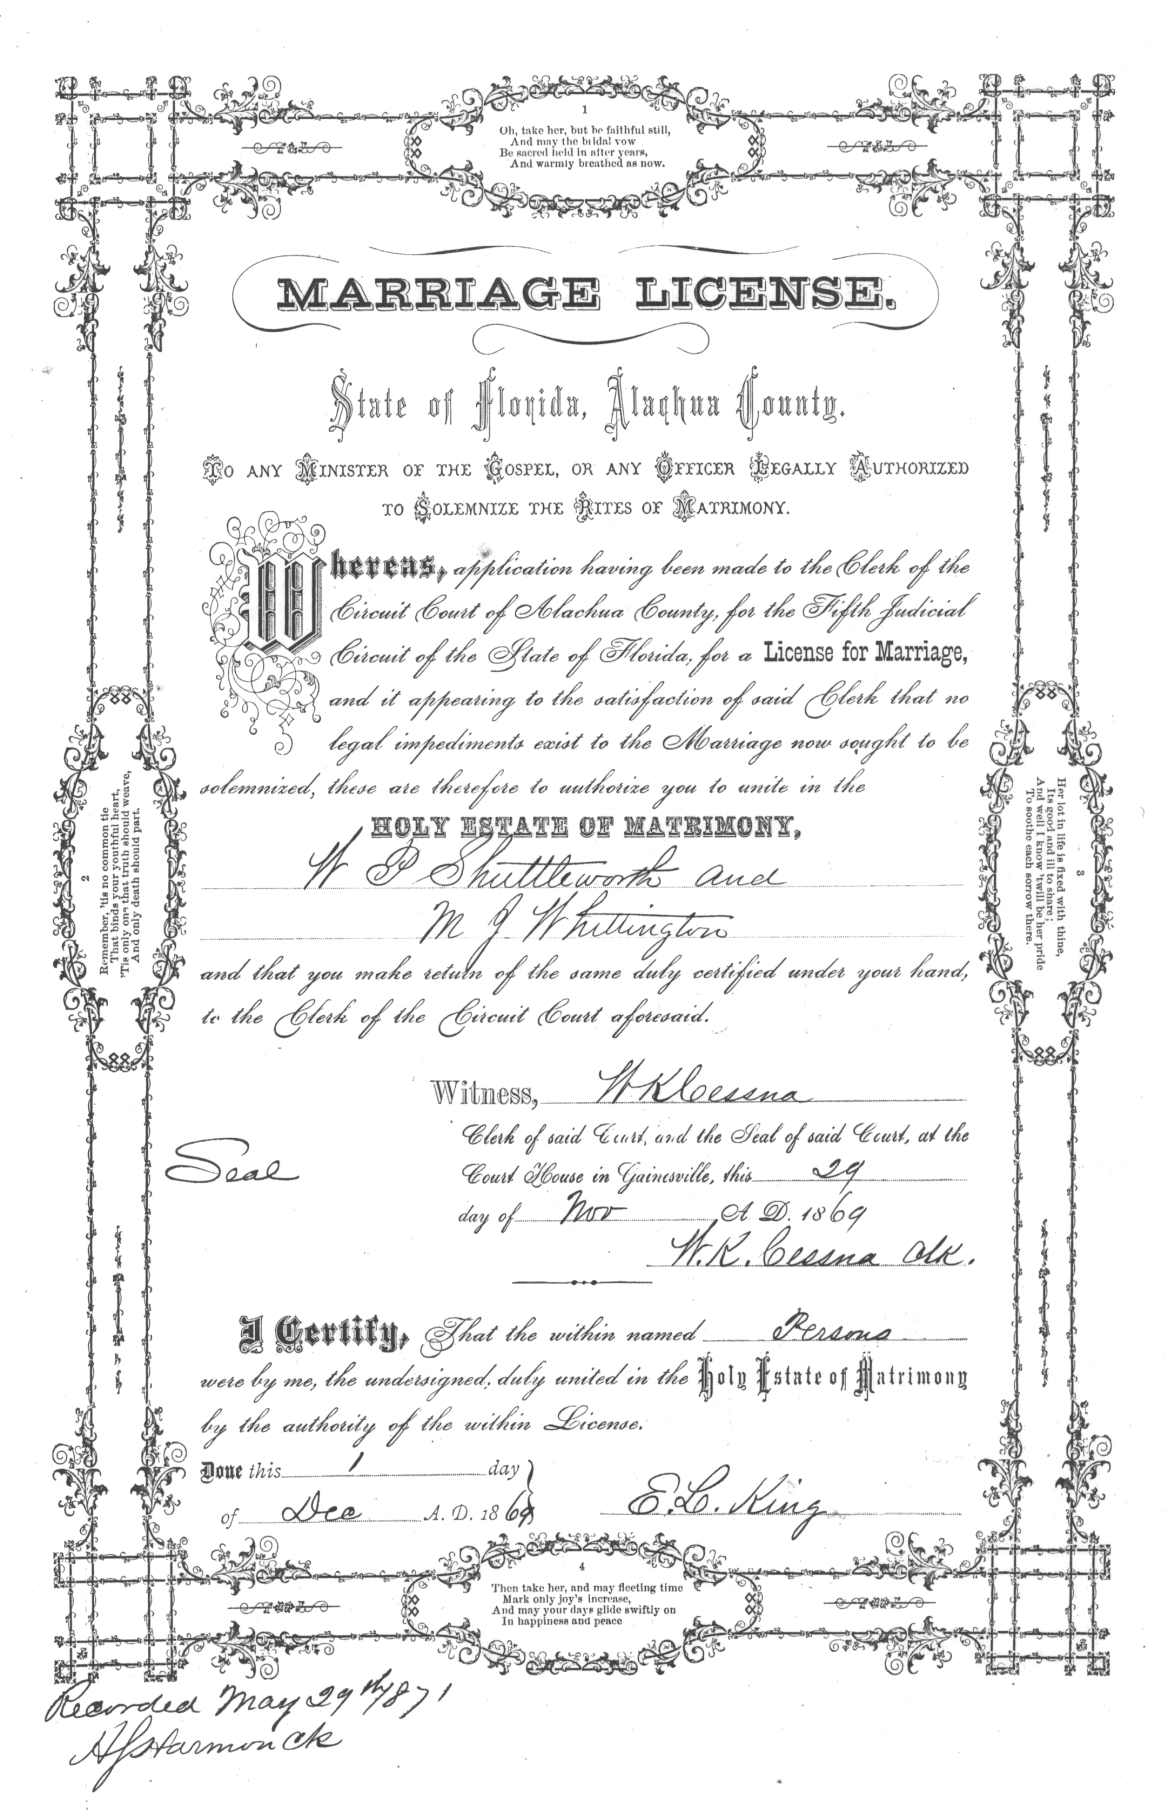 1
Oh, take her, but be faithful still,
And may the bridal vow
Be sacred held in after years,
And warmly breathed as now.
MARRIAGE LICENSE.
State of Florida, Alachua County.
TO ANY MINISTER OF THE GOSPEL, OR ANY OFFICER LEGALLY AUTHORIZED
TO SOLEMNIZE THE RITES OF MATRIMONY.
Whereas, application having been made to the Clerk of the
Circuit Court of Alachua County, for the Fifth Judicial
Circuit of the State of Florida, for a License for Marriage,
and it appearing to the satisfaction of said Clerk that no
legal impediments exist to the Marriage now sought to be
solemnized, these are therefore to authorize you to unite in the
HOLY ESTATE OF MATRIMONY,
W P Shuttleworth and
M J Whittington
and that you make return of the same duly certified under your hand,
to the Clerk of the Circuit Court aforesaid.
Witness, W K Cessna
Clerk of said Court, and the Seal of said Court, at the
Seal
Court House in Gainesville, this 29
day of Nov A. D. 1869
W. K. Cessna Clk.
I Certify, That the within named Persons
were by me, the undersigned, duly united in the Holy Estate of Matrimony
by the authority of the within License.
Done this 1 day
of Dec A. D. 1869
E. L. King
2
Remember, 'tis no common tie
That binds your youthful heart,
'Tis only one that truth should weave,
And only death should part.
3
Her lot in life is fixed with thine,
Its good and ill to share;
And well I know 'twill be her pride
To soothe each sorrow there.
4
Then take her, and may fleeting time
Mark only joy's increase,
And may your days glide swiftly on
In happiness and peace
Recorded May 29th 1871
Harmon Clk